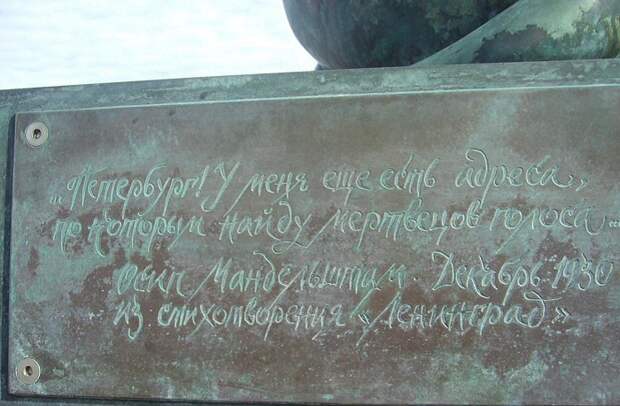 „Петербург! У меня еще есть адреса,
по которым найду мертвецов голоса...
Осип Мандельштам. Декабрь 1930
из стихотворения «Ленинград»